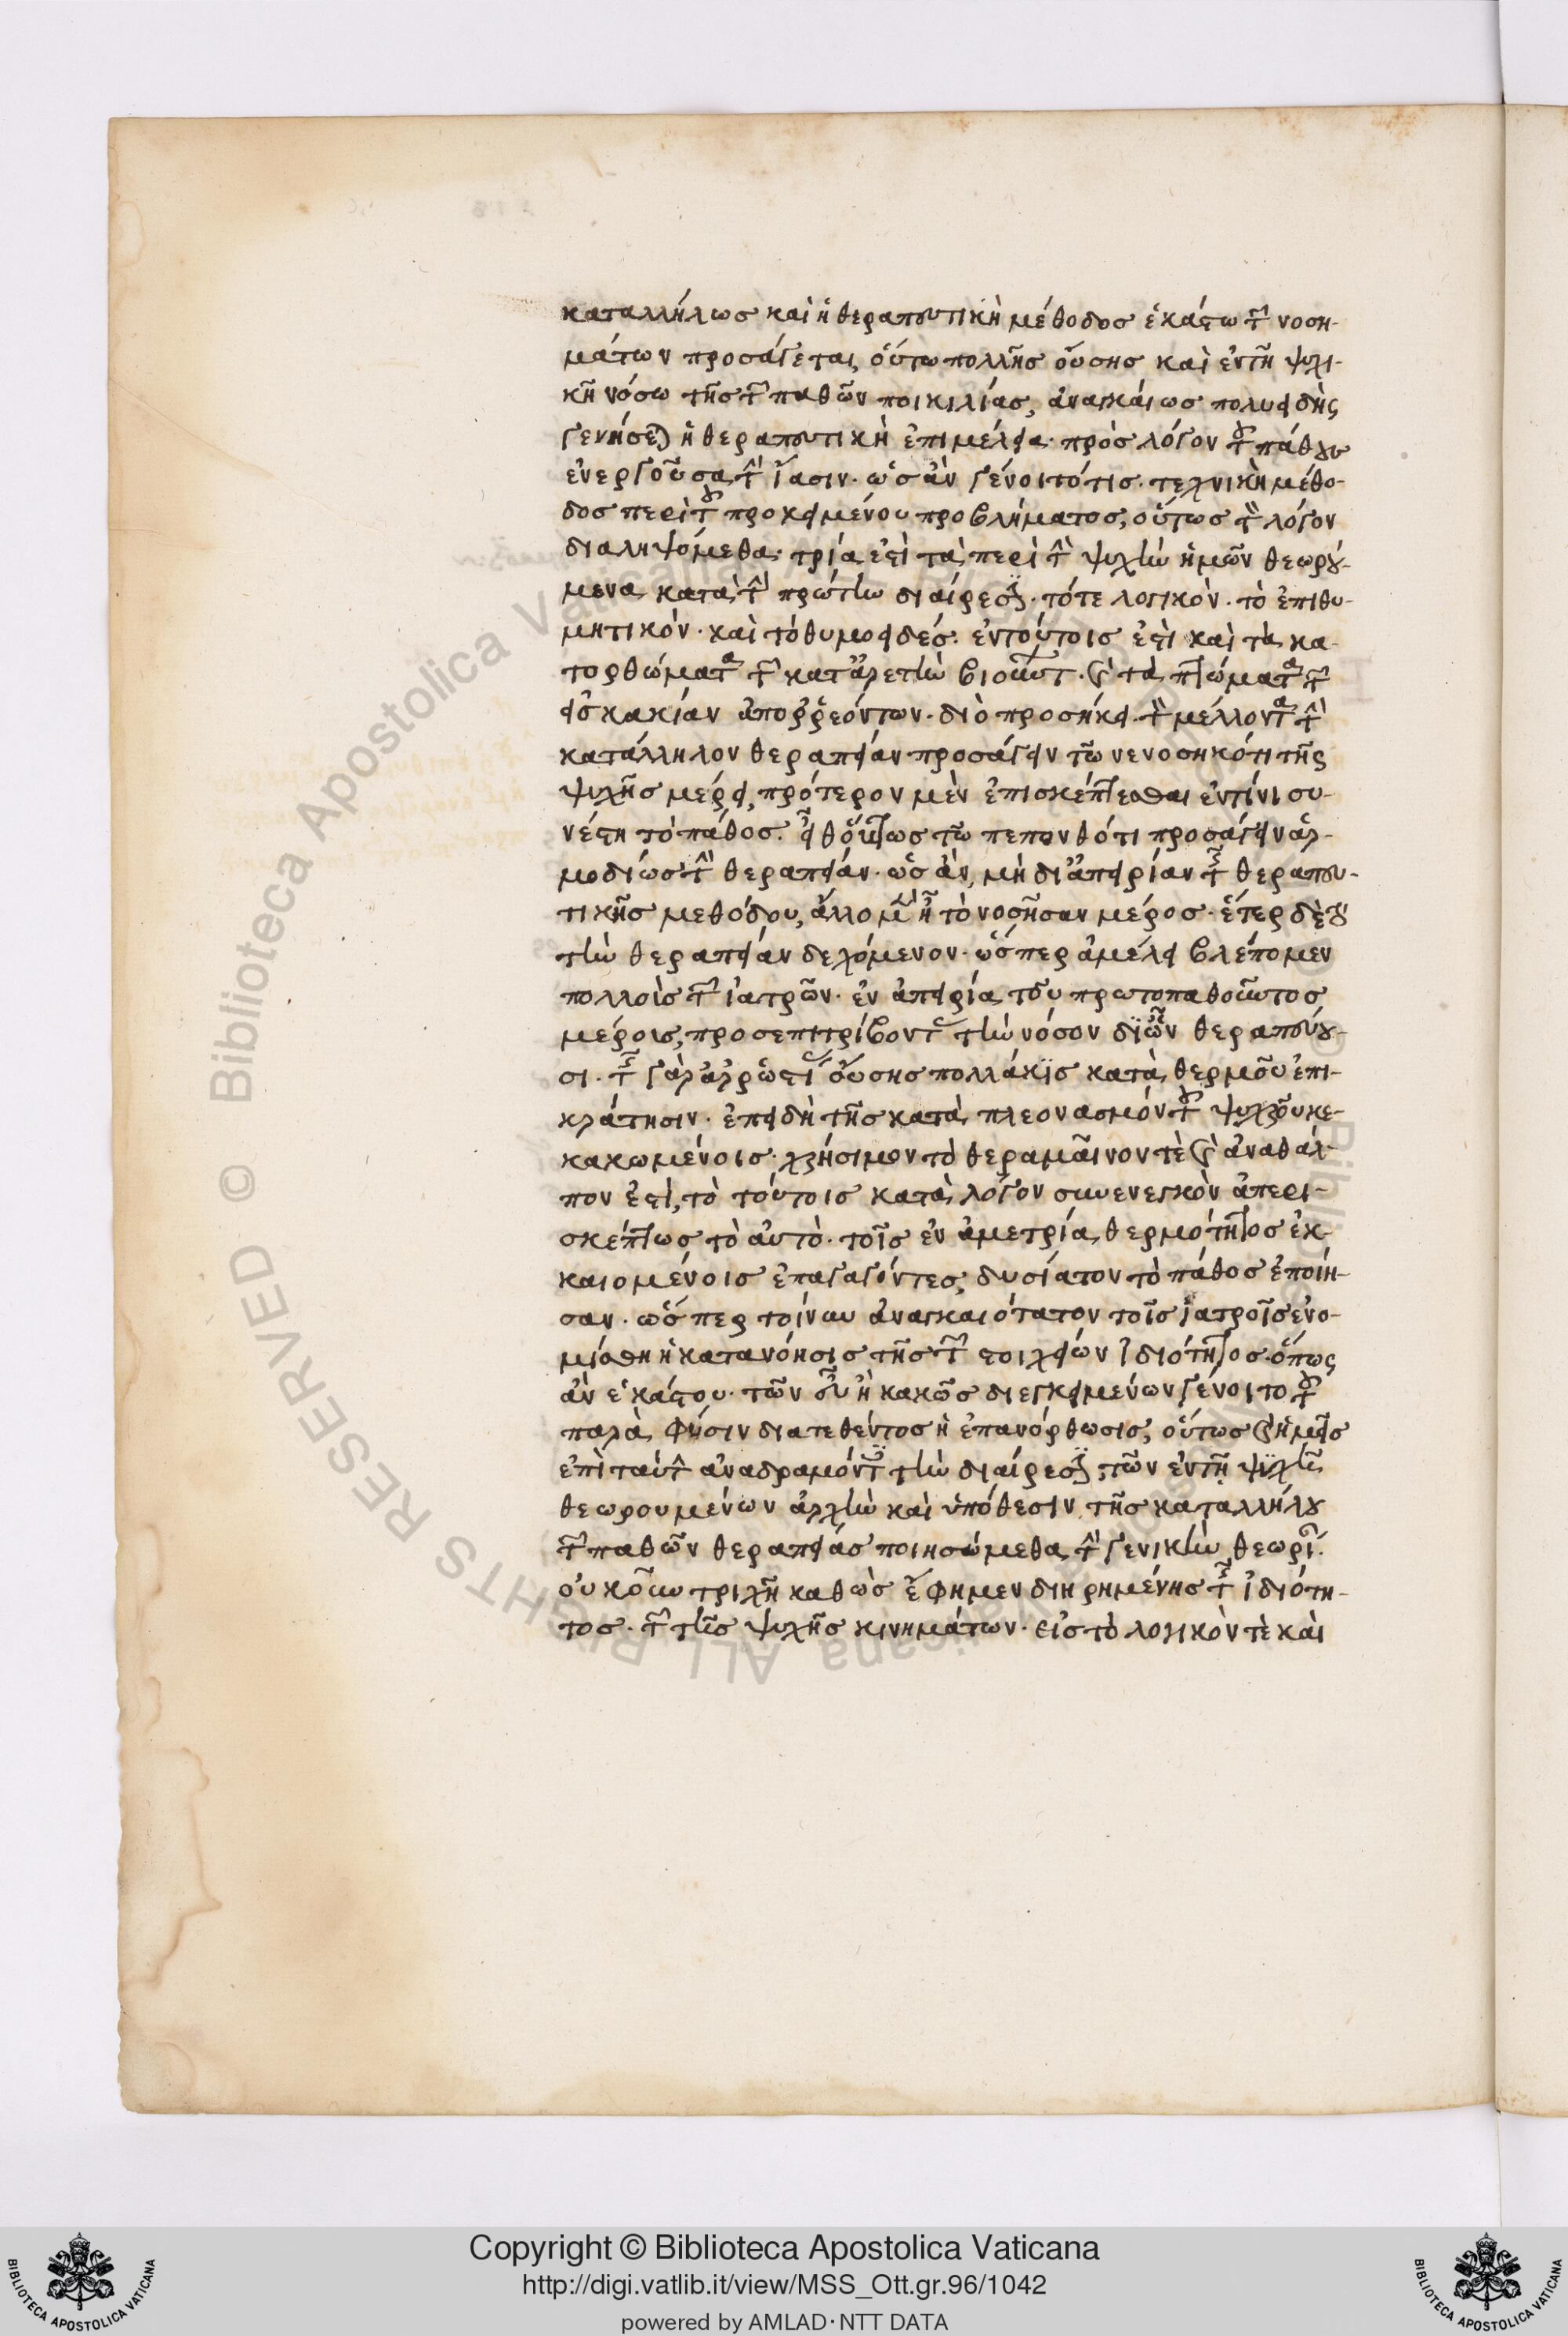 καταλλήλωσ καὶ ἡ θεραπευτικὴ μέθοδοσ ἑκάστω τῶν νοση-
μάτων προσάγεται, οὕτω πολλῆσ οὔσησ καὶ ἐν τῆ ψυχι-
κῆ νόσω τῆσ τῶν παθῶν ποικιλίασ, ἀναγκάιωσ πολυειδὴς
γενήσεται ἡ θεραπευτικὴ ἐπιμέλεια· πρὸσ λόγον τοῦ πάθουσ
ἐνεργοῦσα τὴν ἴασιν· ὡσ ἀν γένοιτό τισ· τεχνικὴ μέθο-
δοσ περὶ τοῦ προκειμένου προβλήματοσ, οὕτωσ τὸν λόγον
διαληψόμεθα· τρία ἐστὶ τὰ περὶ τὴν ψυχὴν ἡμῶν θεωρού-
μενα κατὰ τὴν πρώτην διαίρεσιν· τό τε λογικὸν· τὸ ἐπιθυ-
μητικόν· καὶ τὸ θυμοειδέσ· ἐν τούτοισ ἐστὶ καὶ τὰ κα-
τορθώματα τῶν κατ ἀρετὴν βιούντων· καὶ τὰ πτώματα τῶν
εἰσ κακίαν ἀπορρεόντων· διὸ προσήκει τὸν μέλλοντα τὴν
κατάλληλον θεραπείαν προσάγειν τῶ νενοσηκότι τῆς
ψυχῆσ μέρει, πρότερον μὲν ἐπισκέπτεσθαι ἐν τίνι συ-
νέστη τὸ πάθοσ· εἶθ οὕτωσ τῶ πεπονθότι προσάγειν ἁρ-
μοδίωσ τὴν θεραπείαν· ὡσ ἀν, μὴ δι ἀπειρίαν τῆσ θεραπευ-
τικῆσ μεθόδου, ἄλλο μὲν ἦ τὸ νοσῆσαν μέροσ· ἕτερον δὲ τὸ
τὴν θεραπείαν δεχόμενον· ὥσπερ ἀμέλει βλέπομεν
πολλοὺσ τῶν ἰατρῶν· ἐν ἀπειρία τοῦ πρωτοπαθοῦντοσ
μέρουσ, προσεπιτρίβοντασ τὴν νόσον δι ὧν θεραπεύου-
σι· τῆσ γὰρ ἀρρωστίασ οὔσησ πολλάκισ κατὰ θερμοῦ ἐπι-
κράτησιν· ἐπειδὴ τῆσ κατὰ πλεονασμὸν τοῦ ψυχροῦ κε-
κακωμένοισ· χρήσιμον τὸ θερμαῖνον τὲ καὶ ἀναθάλ-
πον ἐστὶ, τὸ τούτοισ κατὰ λόγον συνενεγκὸν ἀπερι-
σκέπτωσ τὸ αὐτὸ· τοῖσ ἐν ἀμετρία θερμότητοσ ἐκ-
καιομένοισ ἐπαγαγόντες, δυσίατον τὸ πάθοσ ἐποίη-
σαν· ὥσπερ τοίνυν ἀναγκαιότατον τοῖσ ἰατροῖσ ἐνο-
μίσθη ἡ κατανόησισ τῆσ τῶν στοιχείων ἰδιότητοσ· ὅπως
ἀν ἑκάστου τῶν εὖ ἢ κακῶσ διεγκειμένων γένοιτο τοῦ
παρὰ φύσιν διατεθέντοσ ἡ ἐπανόρθωσισ, οὕτωσ καὶ ἡμεῖσ
ἐπὶ ταύτην ἀναδραμόντεσ τὴν διαίρεσιν τῶν ἐν τῆ ψυχῆ
θεωρουμένων ἀρχὴν καὶ ὑπόθεσιν τῆσ καταλλήλου
τῶν παθῶν θεραπείασ ποιησώμεθα τὴν γενικὴν θεωρίαν·
οὐκοῦν τριχῆ καθὼσ ἔφημεν διηρημένησ τῆσ ἰδιότη-
τοσ· τῶν τῆσ ψυχῆσ κινημάτων· εἰσ τὸ λογικὸν τὲ καὶ
Copyright © Biblioteca Apostolica Vaticana
http://digi.vatlib.it/view/MSS_Ott.gr.96/1042
powered by AMLAD·NTT DATA
© Biblioteca Apostolica Vaticana ALL RIGHTS RESERVED
BIBLIOTECA APOSTOLICA VATICANA
BIBLIOTECA APOSTOLICA VATICANA